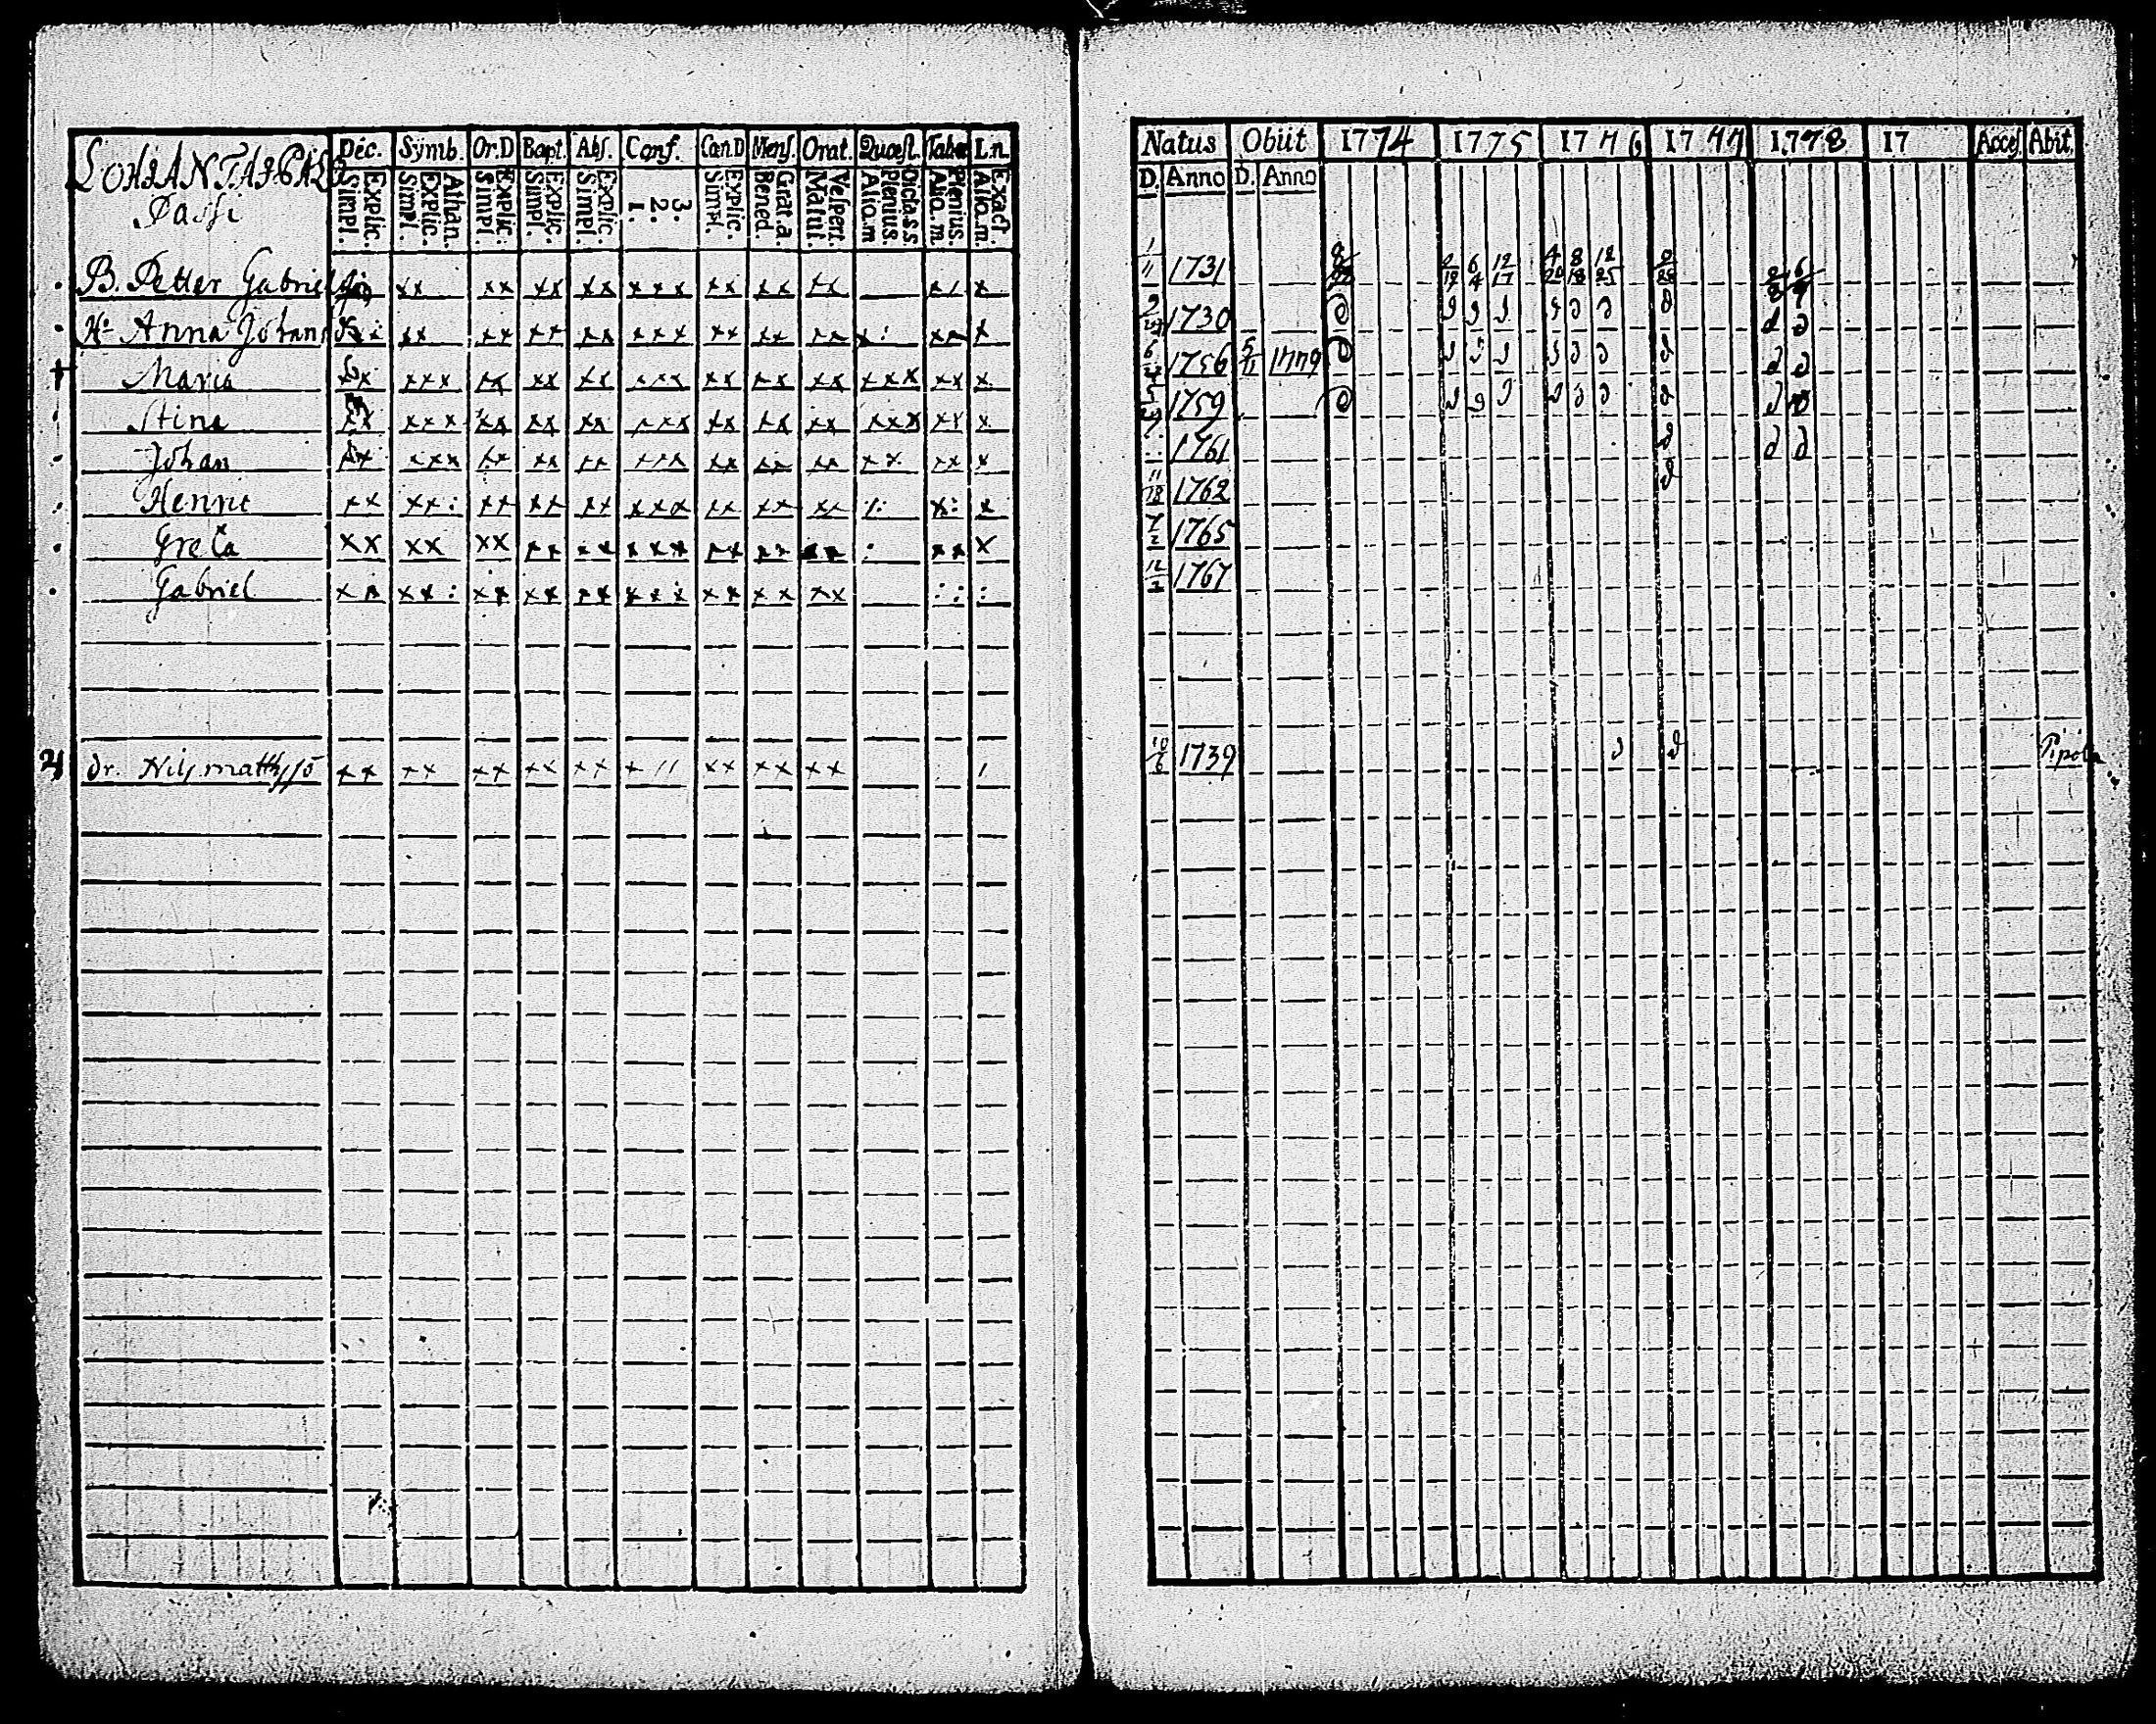 Dec. Symb. Or.D Bapt. Abs. Conf. Can.D Mens. Orat. Quæst. Tabæ L.n.
Explic. Simpl. Athan. Explic. Simpl. Explic. Simpl. Explic. Simpl. Explic. Simpl. 3. 2. 1. Explic. Simpl. Grat.a. Bened. Vesper. Matut. Dict.a s.s. Plenius. Aliq.m Plenius. Aliq.m Exact. Aliq.m.
Passi
B. Petter Gabriel xx xx xx xx xxx xx xx xx x
H: Anna Johans xx xx xx xx xxx xx xx xx x: xx x
Maria xx xxx xx xx xx xxx xx xx xx xxx xx x
Stina xx xxx xx xx xx xxx xx xx xx xxx xx x
Johan xx xxx xx xx xx xxx xx xx xx xx xx x
Henric xx xx: xx xx xx xxx xx xx xx x: x: x
Greta xx xx xx xx xx xxx xx xx xx : xx x
Gabriel xx xx: xx xx xx xxx xx xx xx :: :
dr. Nils matthsso xx xx xx xx xx x11 xx xx xx 1
Natus Obiit 1774 1775 1776 1777 1778 17 Acces. Abit.
D. Anno D. Anno
1/11 1731 6/4 12/17 4/20 8/18 12/25
1730
1756 5/11 1779
1759
1761
11/18 1762
7/2 1765
12/2 1767
10/6 1739 Pipola